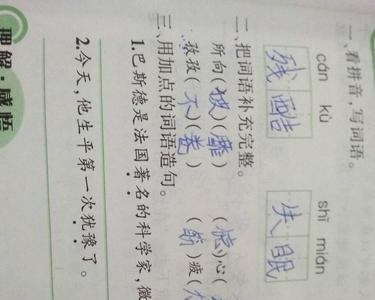 一、看拼音，写词语。
cán kù
shī mián
残酷
失眠
二、把词语补充完整。
所向(披)(靡)
(忧)心(
孜孜(不)(倦)
(筋)疲(力
三、用加点的词语造句。
1.巴斯德是法国著名的科学家，微
2.今天，他生平第一次犹豫了。
理解·感悟